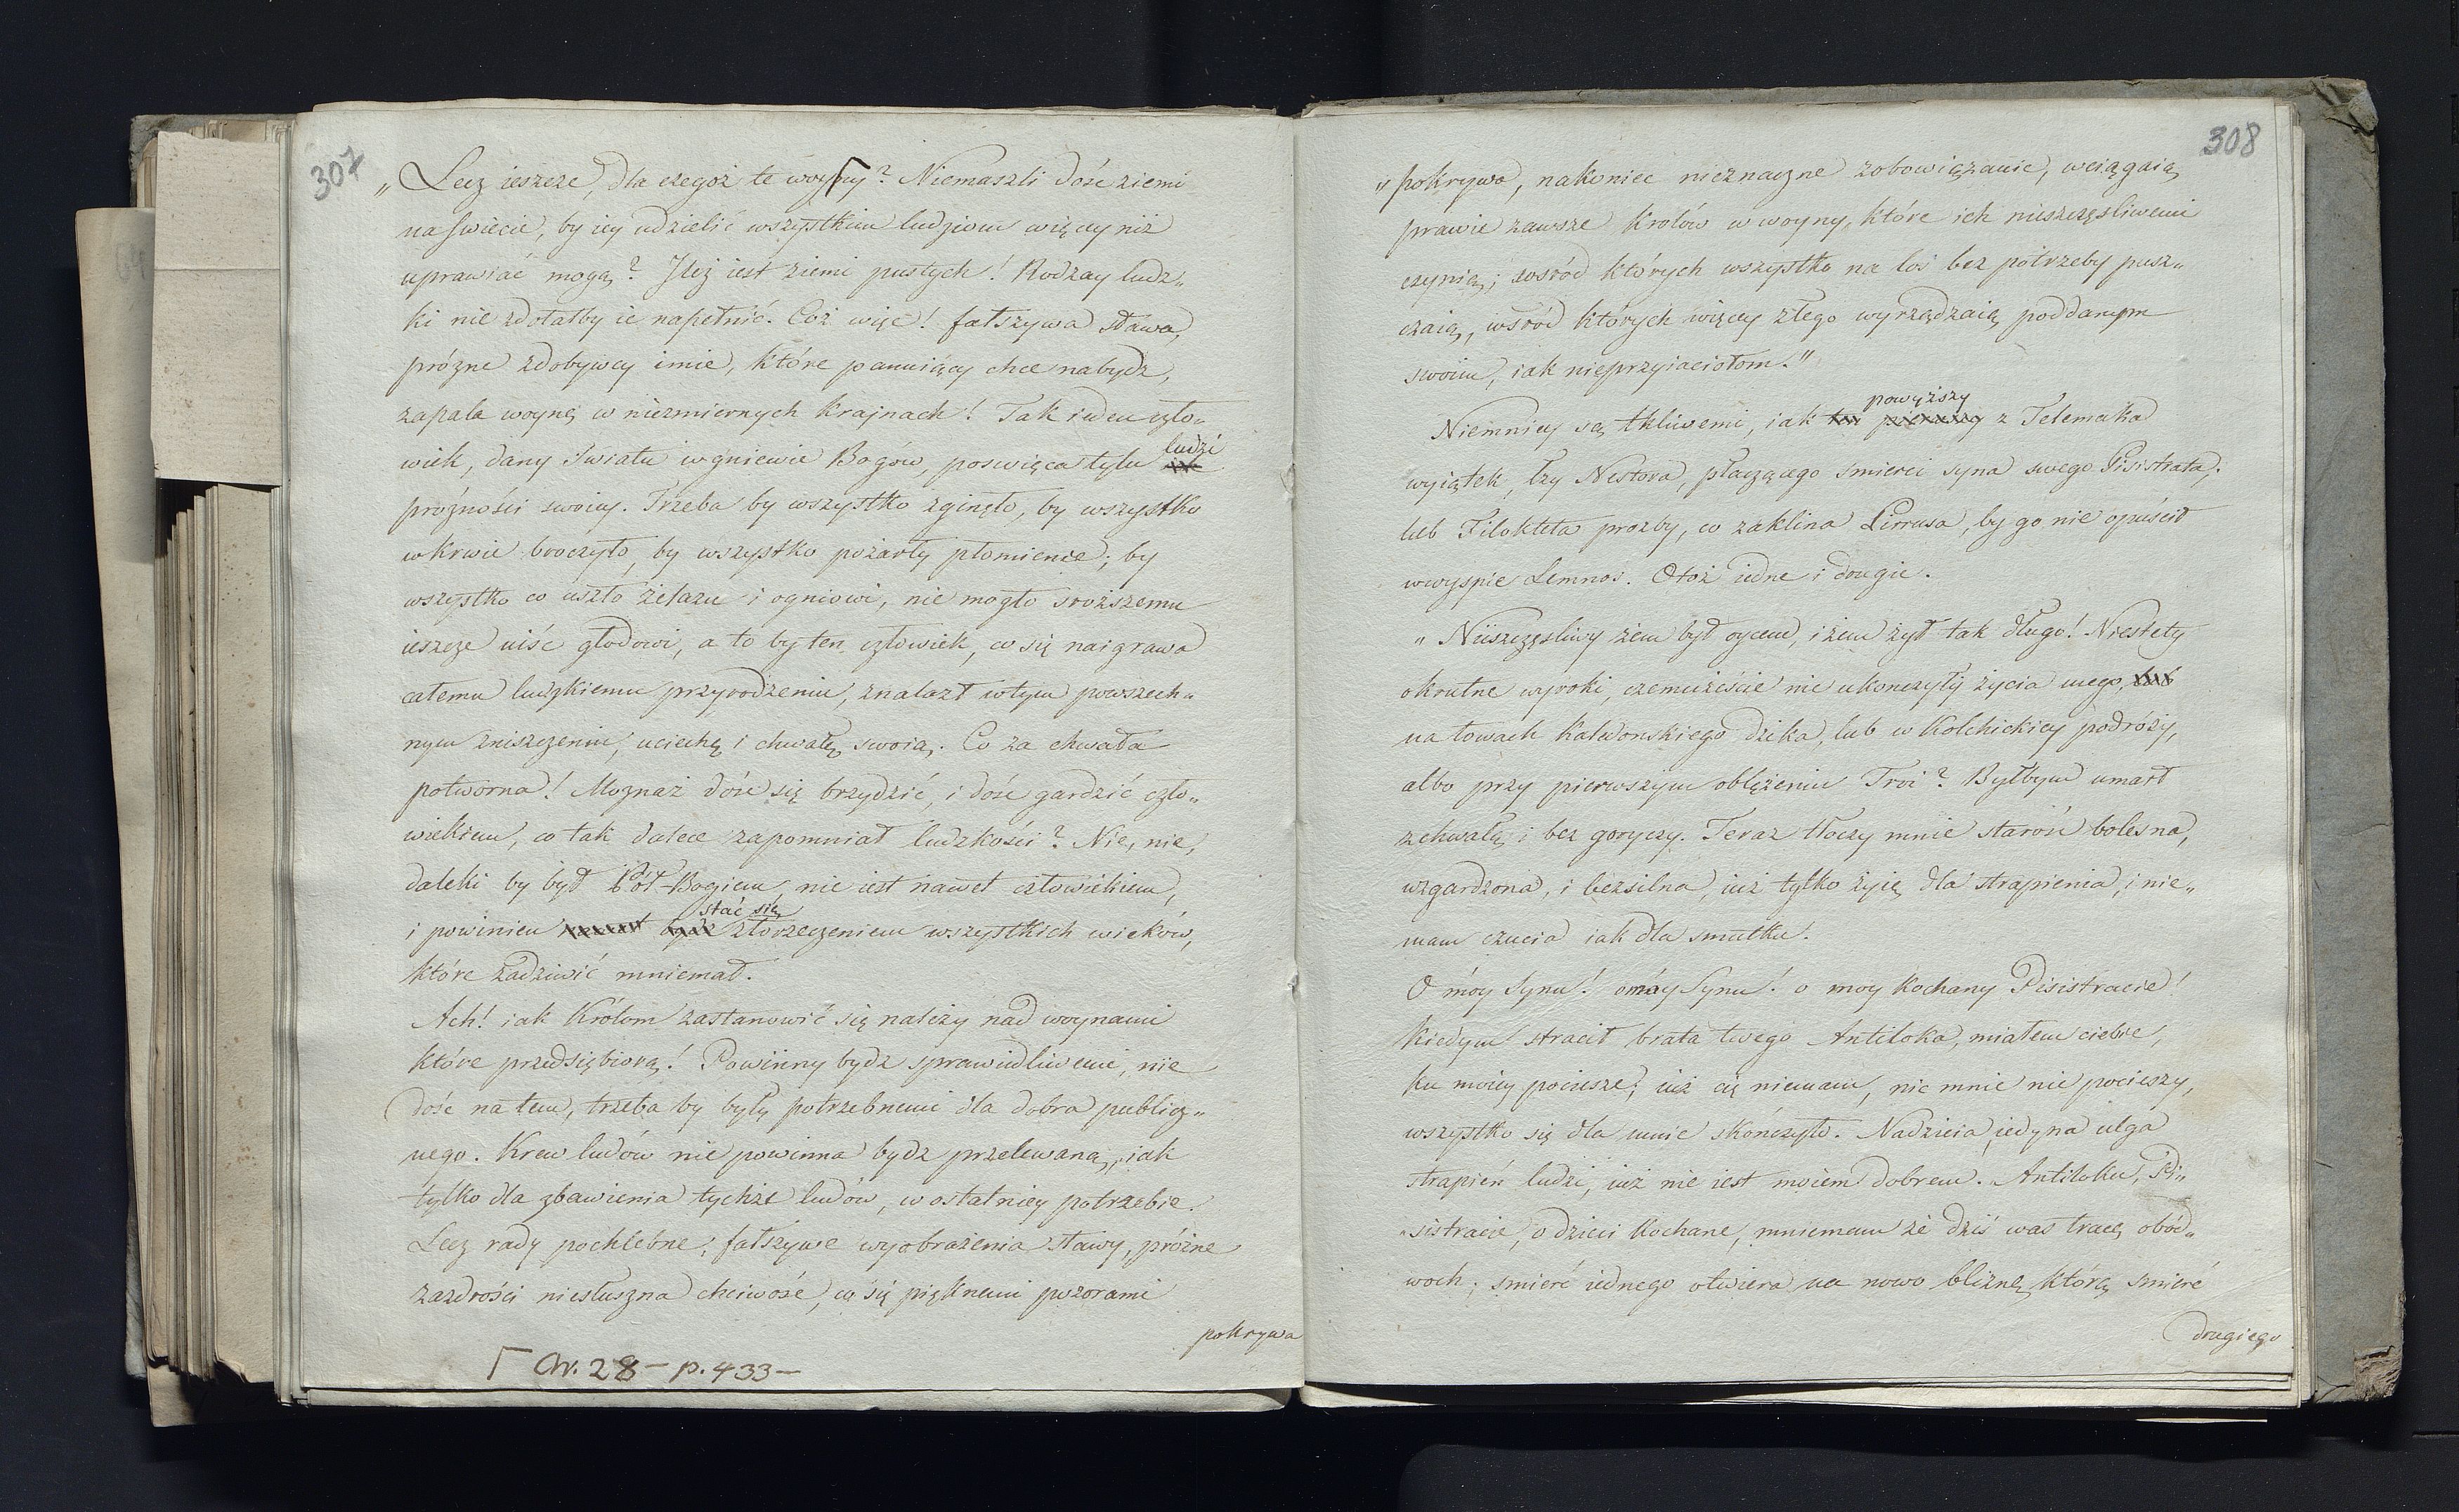 307
„Lecz ieszcze, dla czegoż te woyny? Niemaszli dość ziemi
na świecie, by iey udzielić wszystkim ludziom więcey niż
uprawiać mogą? Ileż iest ziemi pustych! Rodzay ludz„
ki nie zdołałby ie napełnić. Coż więc! fałszywa sława,
prózne zdobywcy imie, które panuiący chce nabydz,
zapala woynę w niezmiernych krajnach! Tak ieden czło„
wiek, dany światu w gniewie Bogow, poswięca tylu ludzi
prózności swoiey. Trzeba by wszystko zginęło, by wszystko
w krwie broczyło, by wszystko pożarły płomienie; by
wszystko co uszło żelazu i ogniowi, nie mogło sroższemu
ieszcze uiśc głodowi, a to by ten człowiek, co się naigrawa
całemu ludzkiemu przyrodzeniu, znalazł w tym powszech„
nym zniszczeniu, uciechę i chwałę swoią. Co za chwała
potworna! Moznaż dość się brzydzić, i dość gardzić czło„
wiekiem, co tak dalece zapomniał ludzkości? Nie, nie,
daleki by był Pół-Bogiem, nie iest nawet człowiekiem,
i powinien stać się złorzeczeniem wszystkich wieków,
które zadziwić mniemał.
Ach! iak Królom zastanowić się należy nad woynami
które przedsiębiorą! Powinny bydz sprawiedliwemi, nie
dość na tem, trzeba by były potrzebnemi dla dobra publicz„
nego. Krew ludów nie powinna bydz przelewaną, iak
tylko dla zbawienia tychże ludów, w ostatniey potrzebie.
Lecz rady pochlebne, fałszywe wyobrażenia sławy, prózne
zazdrości niesłuszna chciwość, co się pięknemi pozorami
pokrywa
Γ Ch. 28 – p. 433 –
308
„pokrywa, nakoniec nieznaczne zobowięzanie, wciągaią
prawie zawsze Krolów w woyny, które ich nieszczęsliwemi
czynią; wsród których wszystko na los bez potrzeby pusz„
czaią, wsród ktorych więcey złego wyrządzaią poddanym
swoim, iak nieprzyiaciołom."
Niemniey są tkliwemi, iak powyższy z Telemaka
wyiątek, łzy Nestora, płaczącego smierci syna swego Pisistrata;
lub Filokteta prozby, co zaklina Pirrusa, by go nie opuścił
w wyspie Lemnos. Otoż iedne i drugie.
„Nieszczęsliwy żem był oycem, i żem żył tak długo! Niestety
okrutne wyroki, czemużeście nie ukonczyły życia mego,
na łowach kalidonskiego dzika, lub w Kolchickiey podróży,
albo przy pierwszym oblężeniu Troi? Byłbym umarł
z chwałą i bez goryczy. Teraz tłoczy mnie starość bolesna,
wzgardzona, i bezsilna, iuż tylko żyię dla strapienia, i nie„
mam czucia iak dla smutku.
O móy Synu! o móy Synu! o moy kochany Pisistracie!
kiedym stracił brata twego Antiloka, miałem ciebie,
ku moiey pociesze; iuż cię niemam, nic mnie nie pocieszy,
wszystko się dla mnie skończyło. Nadzieia, iedyna ulga
strapień ludzi, iuż nie iest moiem dobrem. Antiloku, Pi„
„sistracie, o dzieci kochane, mniemam że dziś was tracę obód„
woch; smierć iednego otwiera na nowo bliznę, którą smierć
drugiego